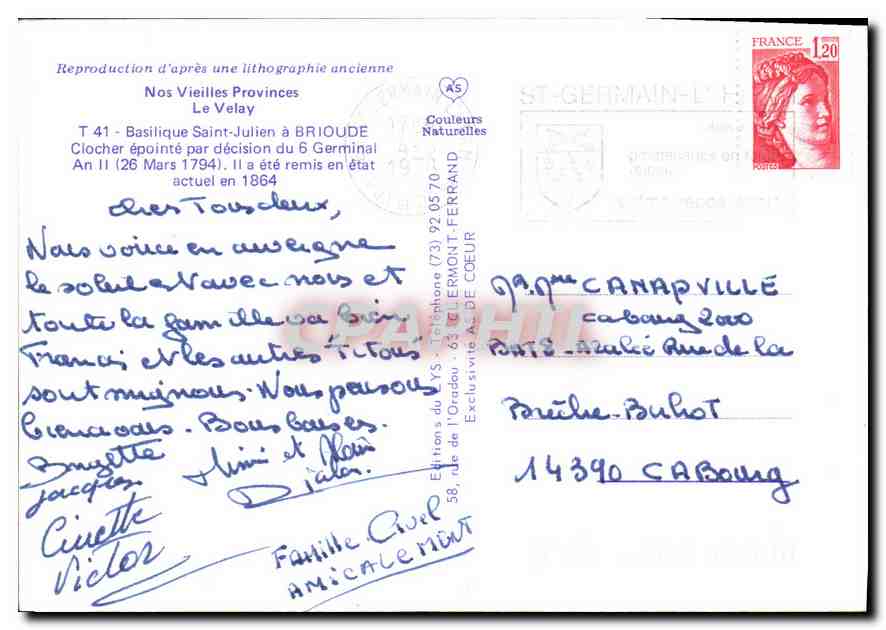 Reproduction d'après une lithographie ancienne
Nos Vieilles Provinces
Le Velay
T 41 - Basilique Saint-Julien à BRIOUDE
Clocher épointé par décision du 6 Germinal
An II (26 Mars 1794). Il a été remis en état
actuel en 1864
chers Tous deux,
Nous voici en auvergne
le soleil est avec nous et
toute la famille va bien
Francis et les autres "Titous"
sont mignons. Nous pensons
bien à vous. Bons baisers.
Brigette
Jacques
Mimi et Alain
Ginette
Victor
Famille
AMICALEMENT
AS
Couleurs
Naturelles
Editions du EYS - Téléphone (73) 92.05.70-
58, rue de l'Oradou - 63 CLERMONT-FERRAND
Exclusivité AS DE COEUR
CPAPHIL
ST-GERMAIN-L'H
FRANCE
1,20
POSTES
Mr. Mme CANAPVILLE
cabourg 2000
BATE - Azalée Rue de la
Brèche-Buhot
14390 CABourg